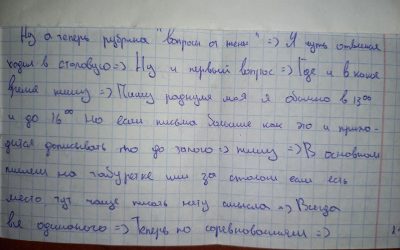 Ну а теперь рубрика "вопросы от жены" => Я чуть отвлекся
ходил в столовую => Ну и первый вопрос => Где и в какое
время пишу => Пишу родная моя я обычно в 13⁰⁰
и до 16⁰⁰ Но если письма большие как это и прихо-
дится дописывать то до талого => пишу => В основном
пишем на табуретке или за столом если есть
место, тут чаще писать нету смысла => Всегда
все одинаково => Теперь по соревнованиям =>